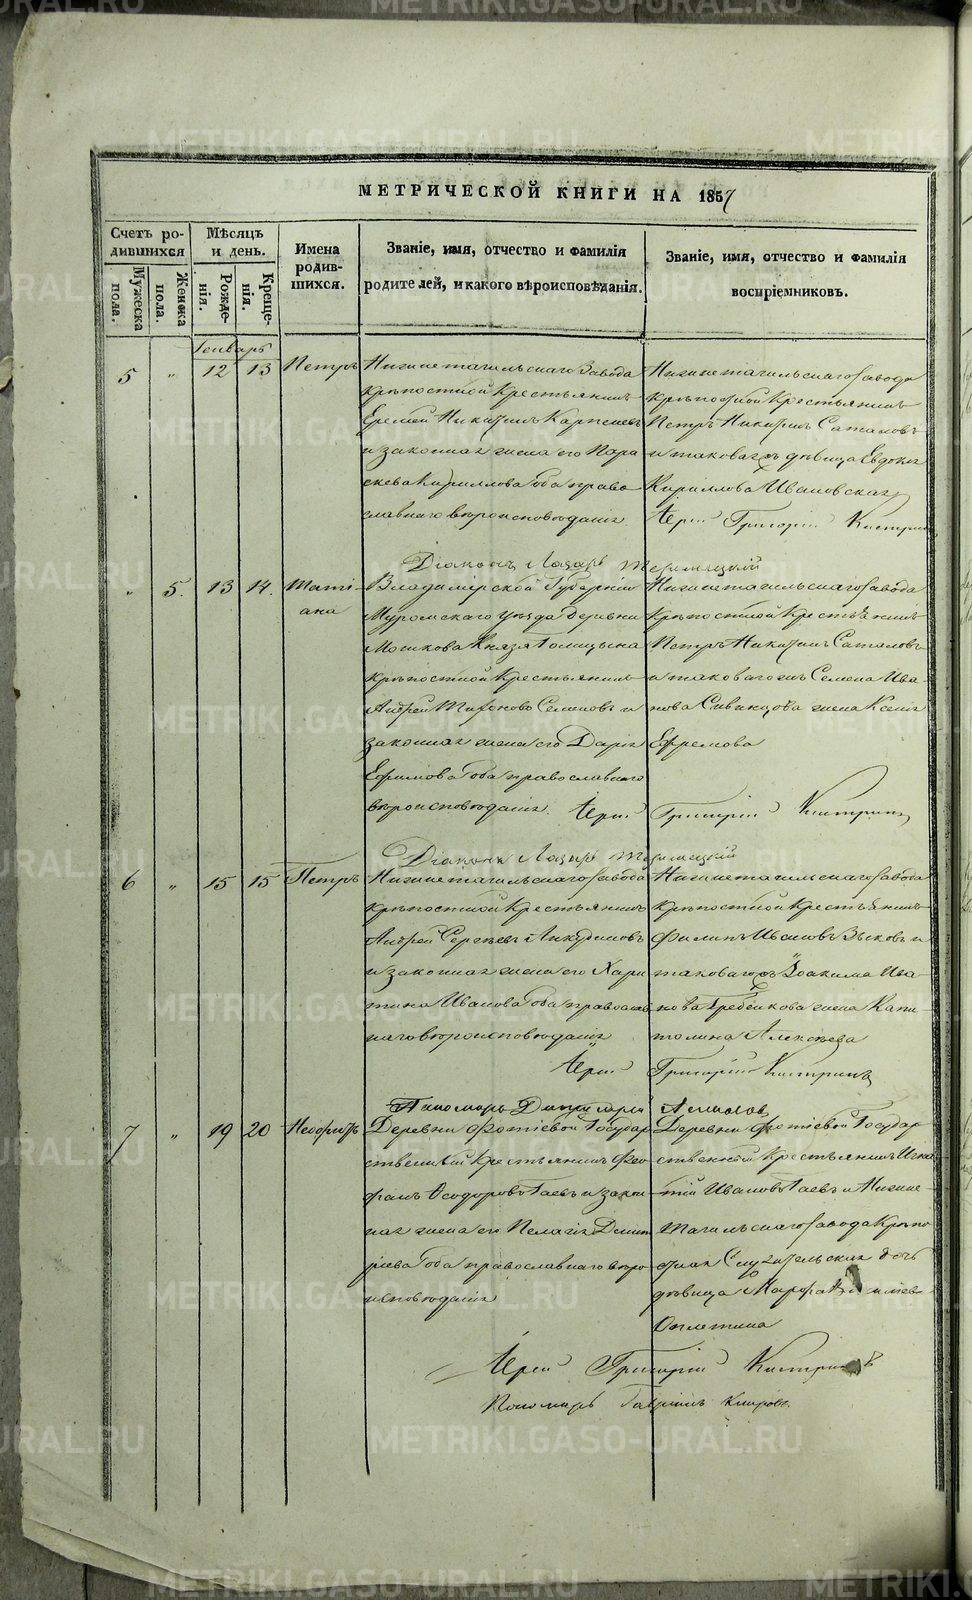 МЕТРИЧЕСКОЙ КНИГИ НА 1857
Счетъ ро-
дившихся
Мѣсяцъ
и день.
Имена
родив-
шихся.
Званіе, имя, отчество и фамилія
родителей, и какого вѣроисповѣданія.
Званіе, имя, отчество и фамилія
воспріемниковъ.
Мужеска
пола.
Женска
пола.
Рожде-
нія.
Креще-
нія.
Генварь
5 " 12 13 Петръ
Нижнетагильскаго завода
крѣпостной Крестьянинъ
Еремей Никитинъ
и законная жена его Пара
скева Кириллова оба право
славнаго вѣроисповѣданія
Нижнетагильскаго завода
крѣпостной Крестьянинъ
Петръ Никитинъ Сатаковъ
и таковагожъ дѣвица Евдокія
Кириллова Ивановская
Іерей Григорій
Діаконъ Лазарь
" 5. 13 14. Тати-
ана
Владимірской Губерніи
Муромскаго уѣзда деревни
Мошкова Князя Голицына
крѣпостной Крестьянинъ
Андрей Тихоновъ Семеновъ и
законная жена его Дарія
Ефимова оба православнаго
вѣроисповѣданія.
Нижнетагильскаго завода
крѣпостной Крестьянинъ
Петръ Никитинъ Сатаковъ
и таковагожъ Семена Ива-
нова Сивинцова жена Ксенія
Ефремова
Іерей Григорій
Діаконъ Лазарь
6 " 15 15 Петръ
Нижнетагильскаго завода
крѣпостной Крестьянинъ
Андрей Сергѣевъ Анкудиновъ
и законная жена его Хари
тина Иванова оба православ
наго вѣроисповѣданія
Нижнетагильскаго завода
крѣпостной Крестьянинъ
Филипъ Ивановъ Зыковъ и
таковагожъ Іоакима Ива-
нова Гребенкова жена Капи-
толина Алексѣева
Іерей Григорій
Пономарь Димитрій
7 " 19 20 Неофитъ
Деревни Фотіевой Государ
ственный крестьянинъ Фео
фанъ Феодоровъ Гаевъ и закон
ная жена его Пелагія Димит
ріева оба православнаго вѣро
исповѣданія
Деревни Фотіевой Государ
ственный Крестьянинъ Игна
тій Ивановъ Гаевъ и Нижне-
тагильскаго завода Крѣпо
стная Служительская дочь
дѣвица Марфа
Оплетина
Іерей Григорій
Пономарь Гавріилъ
METRIKI.GASO-URAL.RU